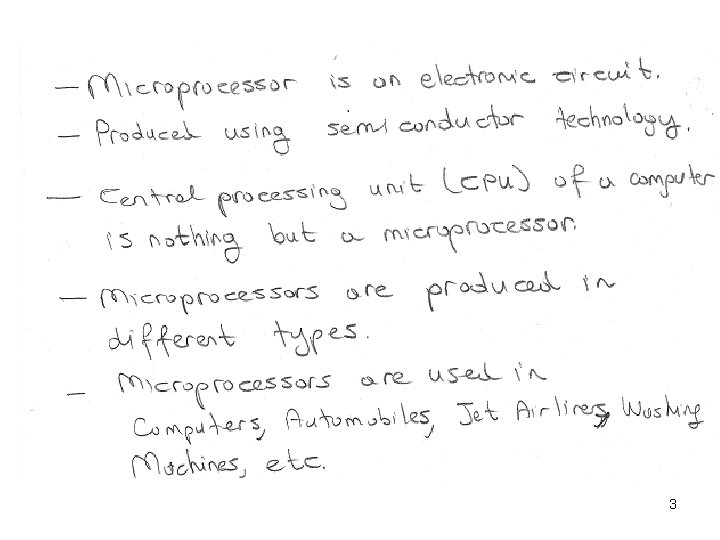 — Microprocessor is an electronic circuit.
— Produced using semiconductor technology.
— Central processing unit (CPU) of a computer
is nothing but a microprocessor.
— Microprocessors are produced in
different types.
— Microprocessors are used in
Computers, Automobiles, Jet Airliners, Washing
Machines, etc.
3